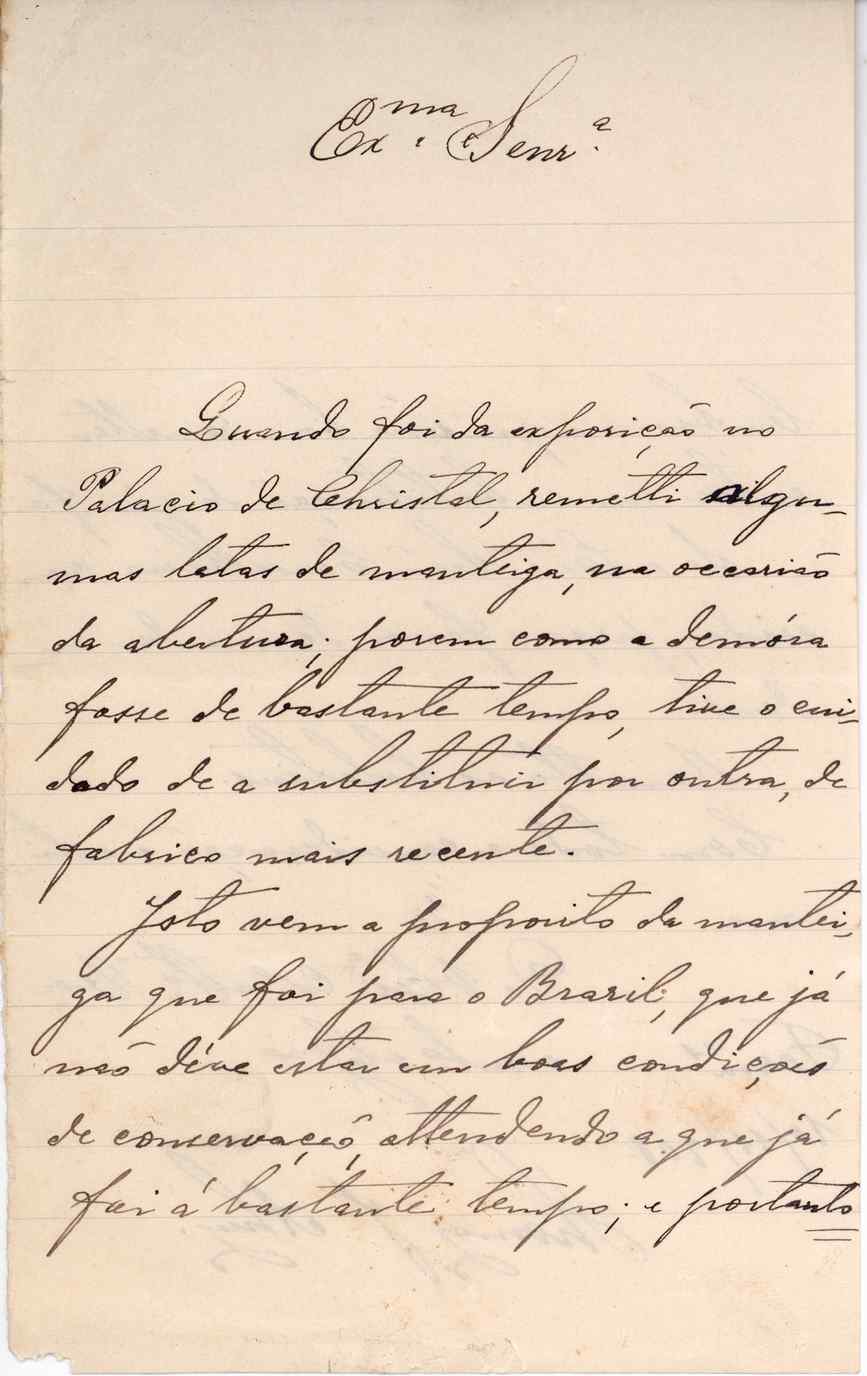 Ex.ma Senr.a
Quando foi da exposição no
Palacio de Christal, remetti algu-
mas latas de manteiga, na occasião
da abertura; porem como a demóra
fosse de bastante tempo, tive o cui-
dado de a substituir por outra, de
fabrico mais recente.
Isto vem a proposito da mantei-
ga que foi para o Brazil, que já
não déve estar em boas condições
de conservação, attendendo a que já
foi á bastante tempo; e portanto